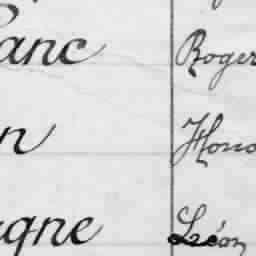 anc Roger
n Hono
agne Léon